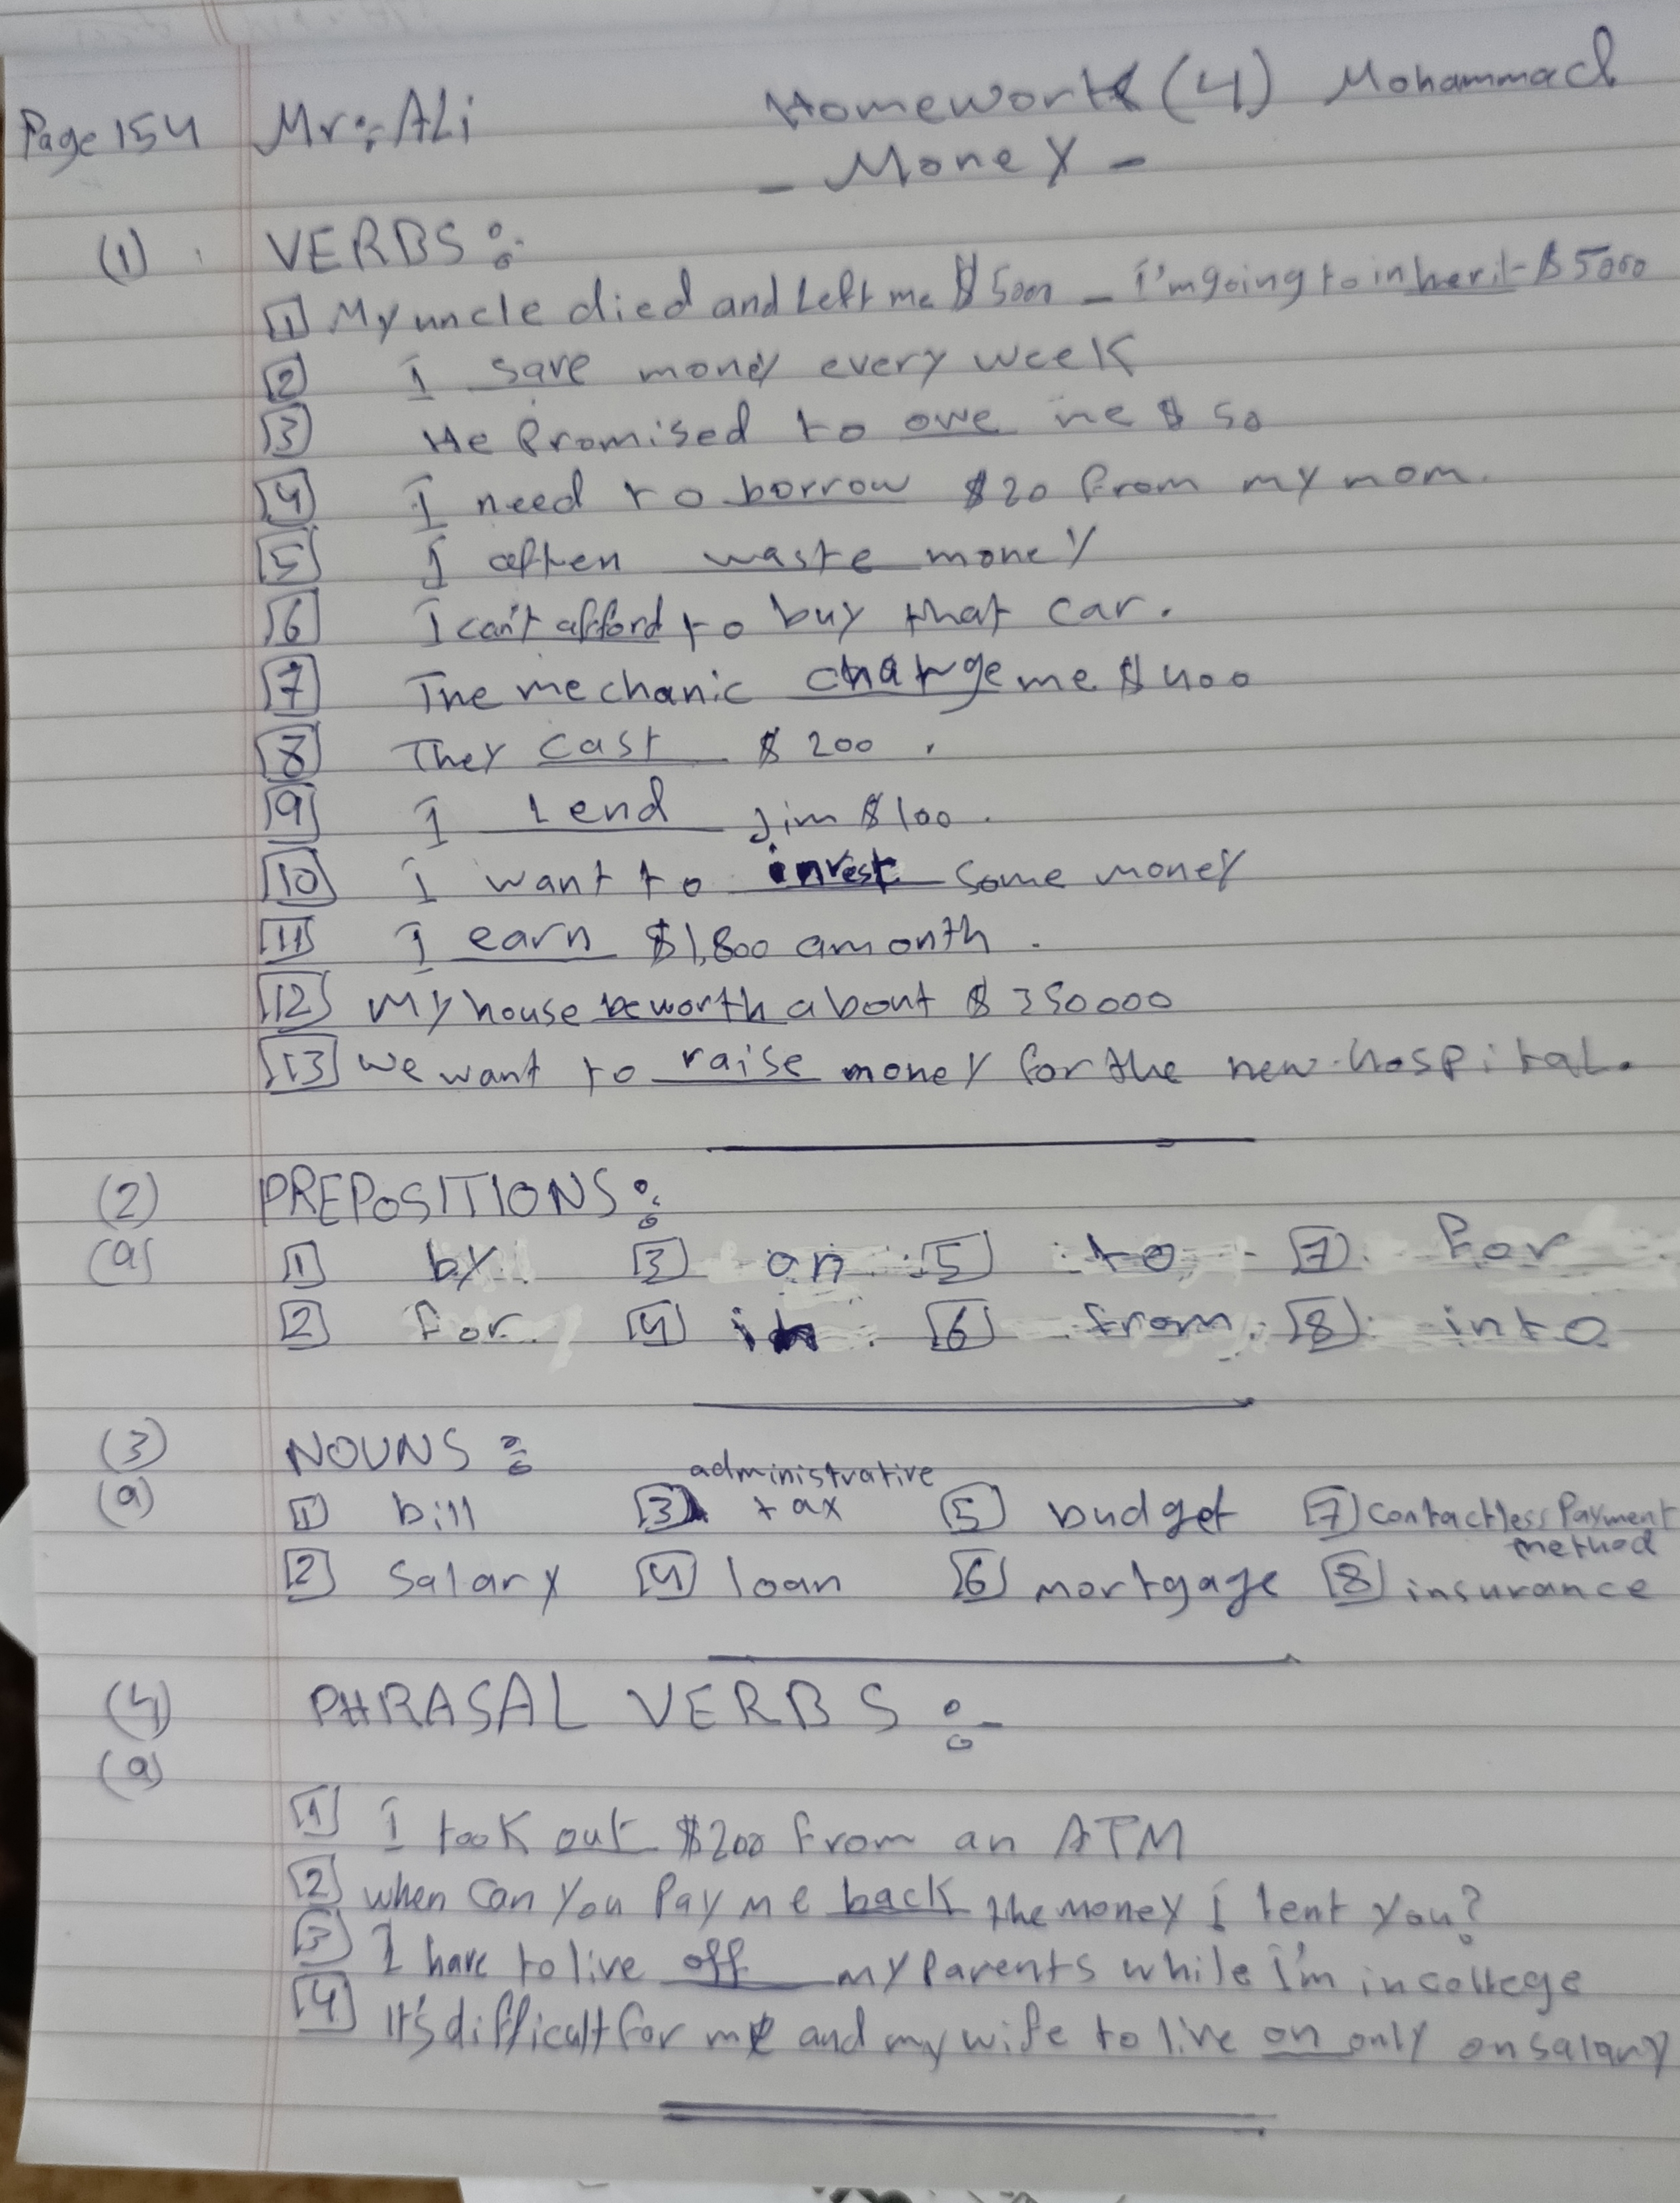 Page 154 Mr: ALi Homework (4) Mohammad
- Money -
(1) VERBS:
1 My uncle died and Left me $5000 - I'm going to inherit $5000
2 I save money every week
3 He Promised to owe me $50
4 I need to borrow $20 from my mom.
5 I often waste money
6 I can't afford to buy that car.
7 The mechanic charge me $400
8 They cast $200.
9 I lend Jim $100.
10 I want to invest some money
11 I earn $1,800 a month.
12 My house be worth about $350000
13 we want to raise money for the new hospital.
(2) PREPOSITIONS:
(a) 1 by 3 on 5 to 7 for
2 for 4 in 6 from 8 into
(3) NOUNS:
administrative
(a) 1 bill 3 tax 5 budget 7 Contactless Payment
method
2 Salary 4 loan 6 mortgage 8 insurance
(4) PHRASAL VERBS:-
(a)
1 I took out $200 from an ATM
2 when can you Pay me back the money I lent you?
3 I have to live off my Parents while I'm in college
4 It's difficult for me and my wife to live on only on salary